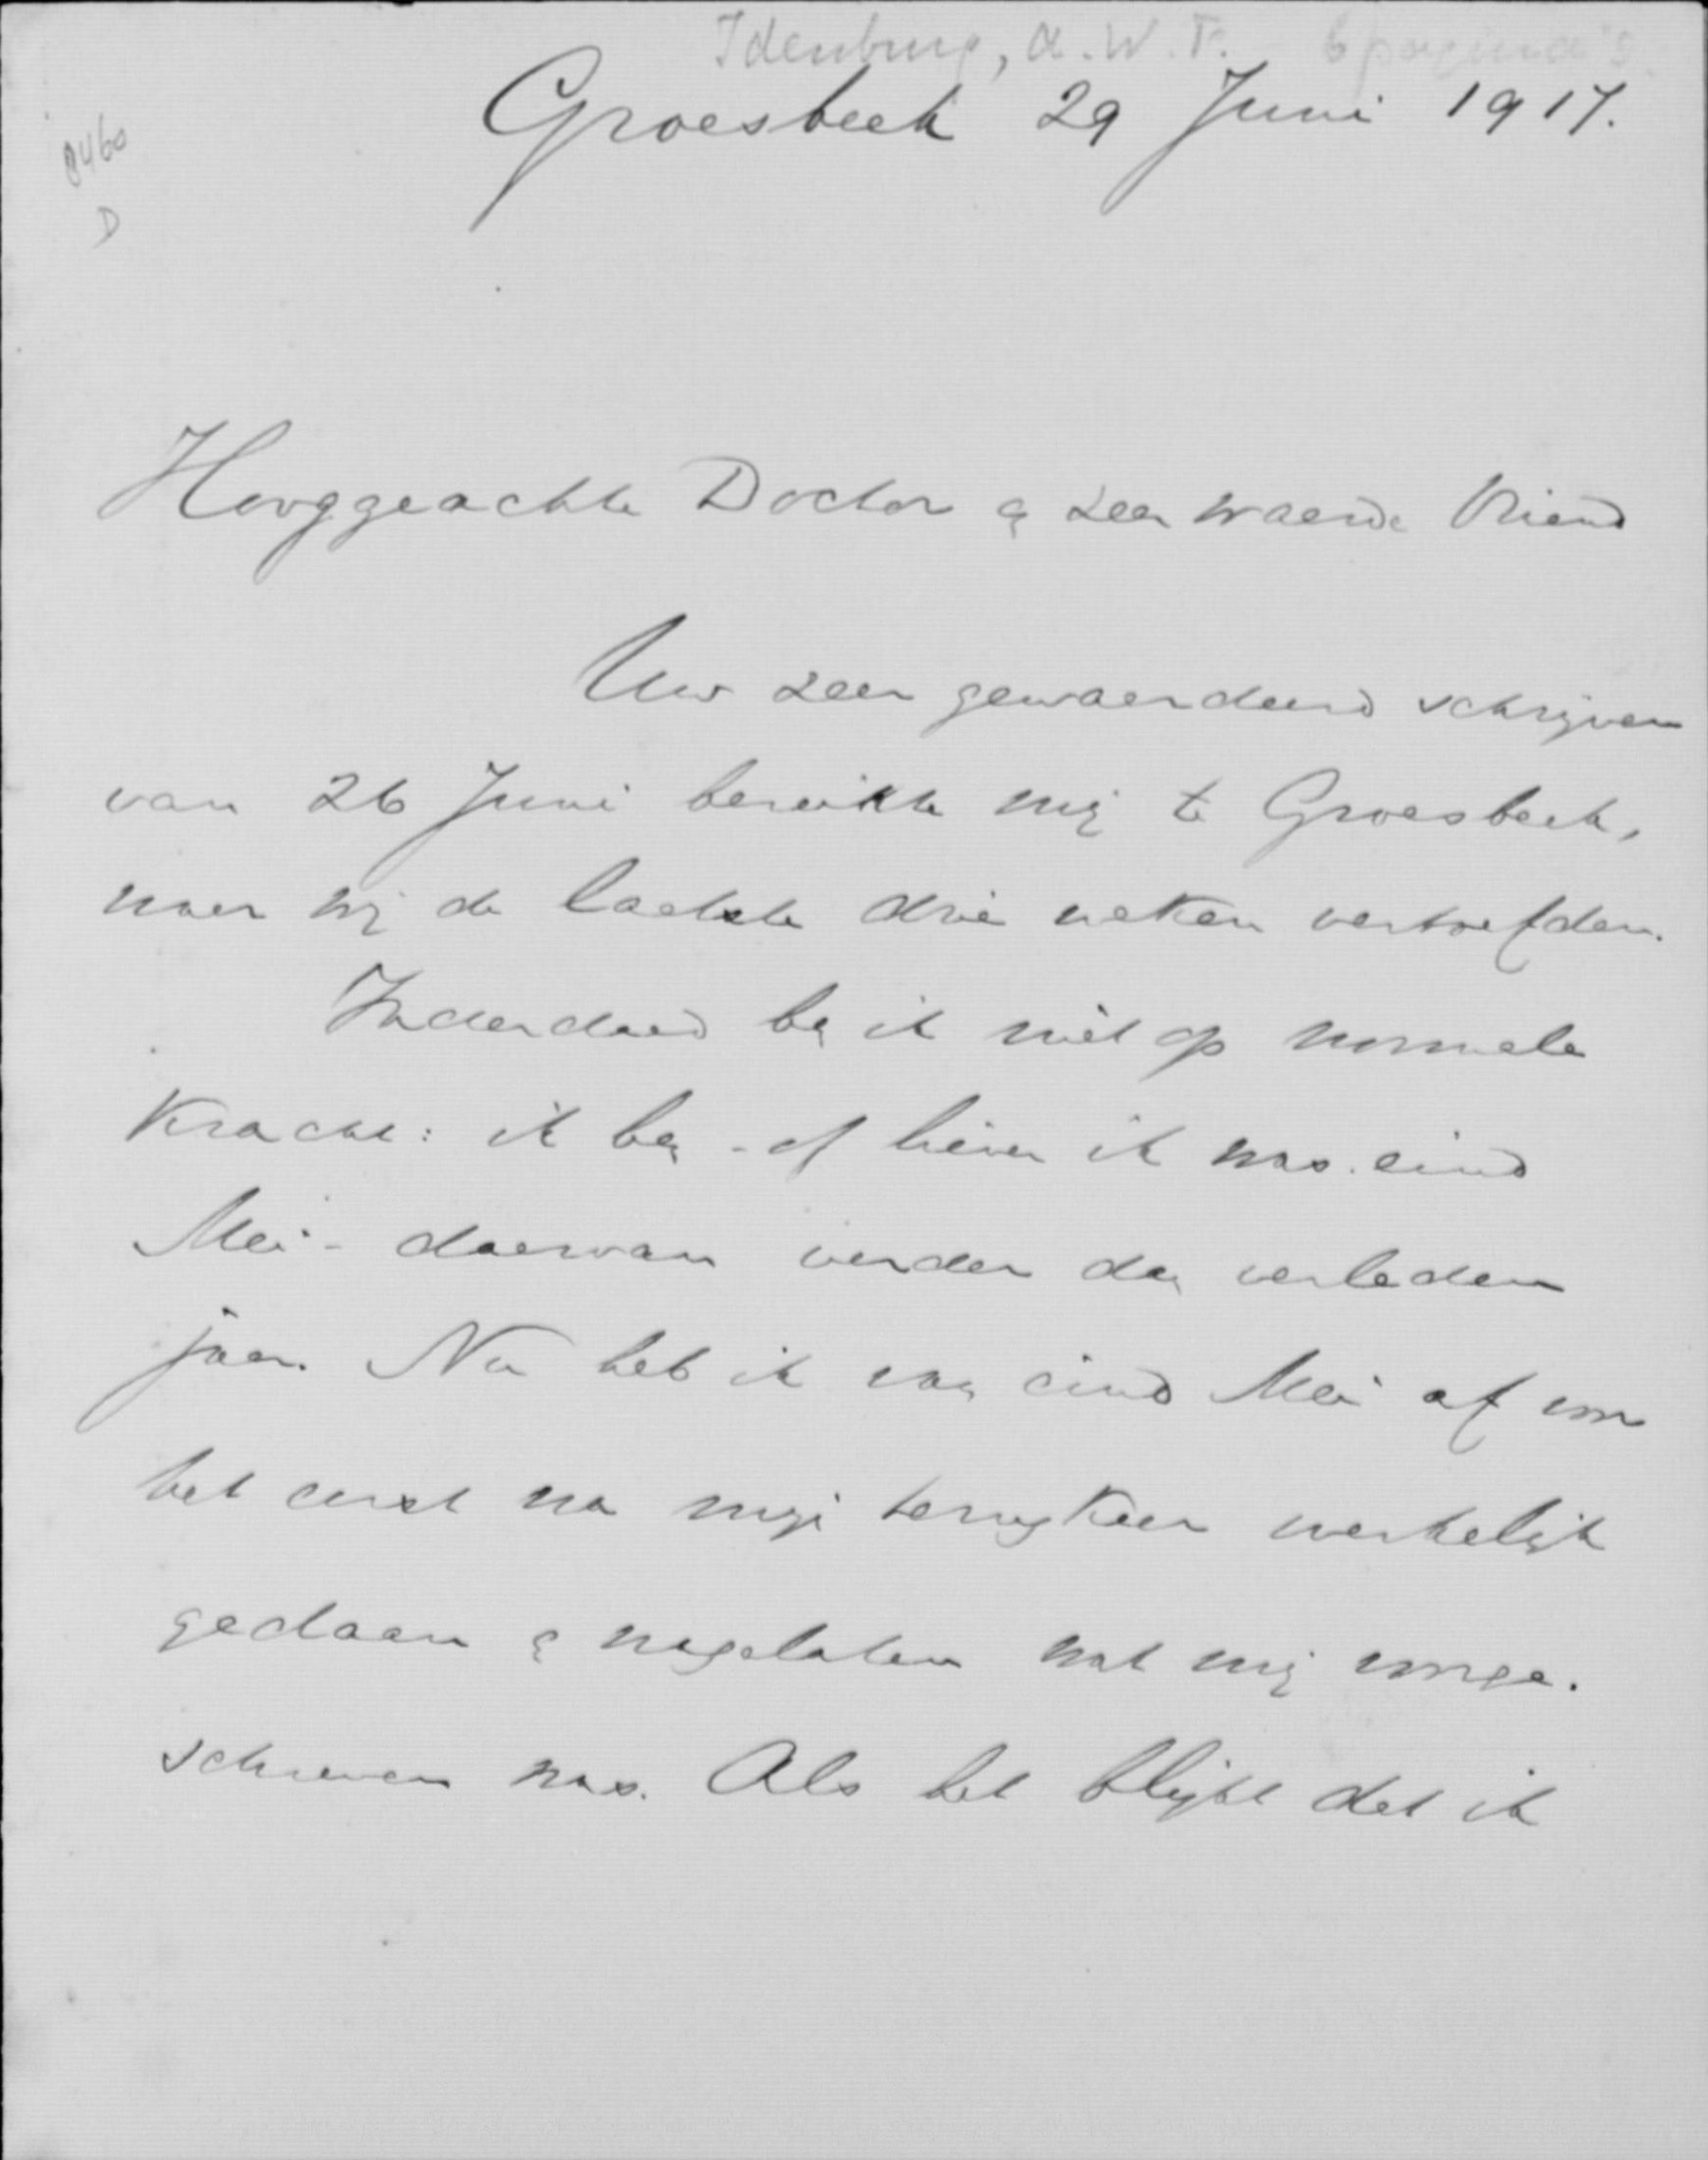 Idenburg, A.W.F. 6 pagina's
Groesbeek 29 Juni 1917.
8460
D
Hooggeachte Doctor & zeer waarde Vriend
Uw zeer gewaardeerd schrijven
van 26 Juni bereikte mij te Groesbeek,
waar wij de laatste drie weken vertoefden.
Inderdaad ben ik niet op normale
kracht: ik ben - of liever ik was eind
Mei - daarvan verder dan verleden
jaar. Nu heb ik van eind Mei af voor
het eerst na mijn terugkeer werkelijk
gedaan & nagelaten wat mij voorge-
schreven was. Als het blijkt dat ik